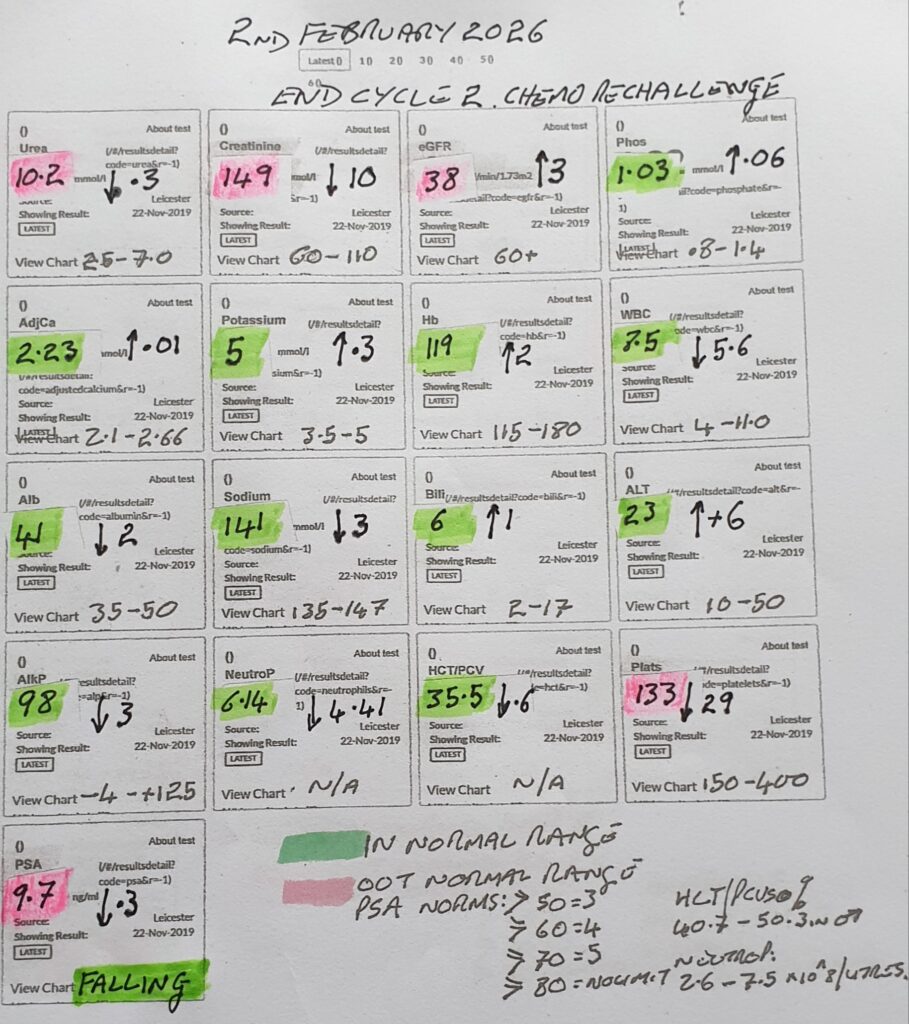 2ND FEBRUARY 2026
Latest 0 10 20 30 40 50
60
END CYCLE 2. CHEMO RECHALLENGE
()
About test
Urea
(/#/resultsdetail?
code=urea&r=-1)
10.2 mmol/l ↓ .3
Leicester
Showing Result: 22-Nov-2019
LATEST
View Chart 25-7.0
()
About test
Creatinine
(/#/resultsdetail?
149 mol/l ↓ 10
&r=-1)
Source: Leicester
Showing Result: 22-Nov-2019
LATEST
View Chart 60-110
()
About test
eGFR
38 /min/1.73m2 ↑3
etail?code=egfr&r=-1)
Source: Leicester
Showing Result: 22-Nov-2019
LATEST
View Chart 60+
()
About test
Phos
1.03 mmol/l ↑.06
ail?code=phosphate&r=-
1)
Source: Leicester
Showing Result: 22-Nov-2019
LATEST
View Chart .8-1.4
()
About test
AdjCa
2.23 mmol/l ↑.01
(/#/resultsdetail?
code=adjustedcalcium&r=-1)
Source: Leicester
Showing Result: 22-Nov-2019
LATEST
View Chart 2.1-2.66
()
About test
Potassium
(/#/resultsdetail?
5 mmol/l ↑.3
sium&r=-1)
Source: Leicester
Showing Result: 22-Nov-2019
LATEST
View Chart 3.5-5
()
About test
Hb
(/#/resultsdetail?
code=hb&r=-1)
119 ↑2
Source: Leicester
Showing Result: 22-Nov-2019
LATEST
View Chart 115-180
()
About test
WBC
(/#/resultsdetail?
ode=wbc&r=-1)
7.5 ↓ 5.6
Source: Leicester
Showing Result: 22-Nov-2019
LATEST
View Chart 4-11.0
()
About test
Alb
(/#/resultsdetail?
code=albumin&r=-1)
41 ↓ 2
Source: Leicester
Showing Result: 22-Nov-2019
LATEST
View Chart 35-50
()
About test
Sodium
(/#/resultsdetail?
141 mmol/l ↓ 3
code=sodium&r=-1)
Source: Leicester
Showing Result: 22-Nov-2019
LATEST
View Chart 135-147
()
About test
Bili (/#/resultsdetail?code=bili&r=-1)
6 ↑1
Source: Leicester
Showing Result: 22-Nov-2019
LATEST
View Chart 2-17
()
About test
ALT /resultsdetail?code=alt&r=-
23 ↑+6
Source: Leicester
Showing Result: 22-Nov-2019
LATEST
View Chart 10-50
()
About test
AlkP
resultsdetail?
=alp&r=-1)
98 ↓ 3
Source: Leicester
Showing Result: 22-Nov-2019
LATEST
View Chart -4-+125
()
About test
NeutroP
(/#/resultsdetail?
code=neutrophils&r=-
1)
6.14 ↓ 4.41
Source: Leicester
Showing Result: 22-Nov-2019
LATEST
View Chart N/A
()
About test
HCT/PCV
/resultsdetail?
e=hct&r=-1)
35.5 ↓.6
Source: Leicester
Showing Result: 22-Nov-2019
LATEST
View Chart N/A
()
About test
Plats
/resultsdetail?
ode=platelets&r=-1)
133 ↓ 29
Source: Leicester
Showing Result: 22-Nov-2019
LATEST
View Chart 150-400
()
About test
PSA
(/#/resultsdetail?
code=psa&r=-1)
9.7 ng/ml ↓.3
Source: Leicester
Showing Result: 22-Nov-2019
LATEST
View Chart FALLING
IN NORMAL RANGE
OOT NORMAL RANGE
PSA NORMS: > 50=3
> 60=4
> 70=5
> 80=NO LIMIT
HCT/PCV
40.7-50.3 IN ♂
NEUTROP:
2.6-7.5 x10^8/LITRES.